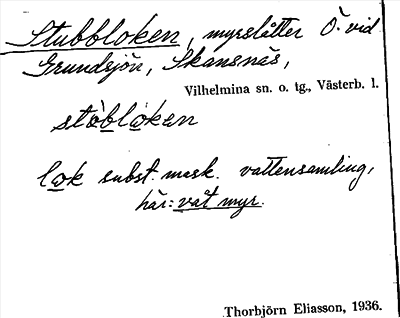 Stubbloken, myrslåtter Ö. vid
Grundsjön, Skansnäs,
Vilhelmina sn. o. tg., Västerb. l.
stòblo̱ken
lo̱k subst. mask. vattensamling,
här: våt myr.
Thorbjörn Eliasson, 1936.